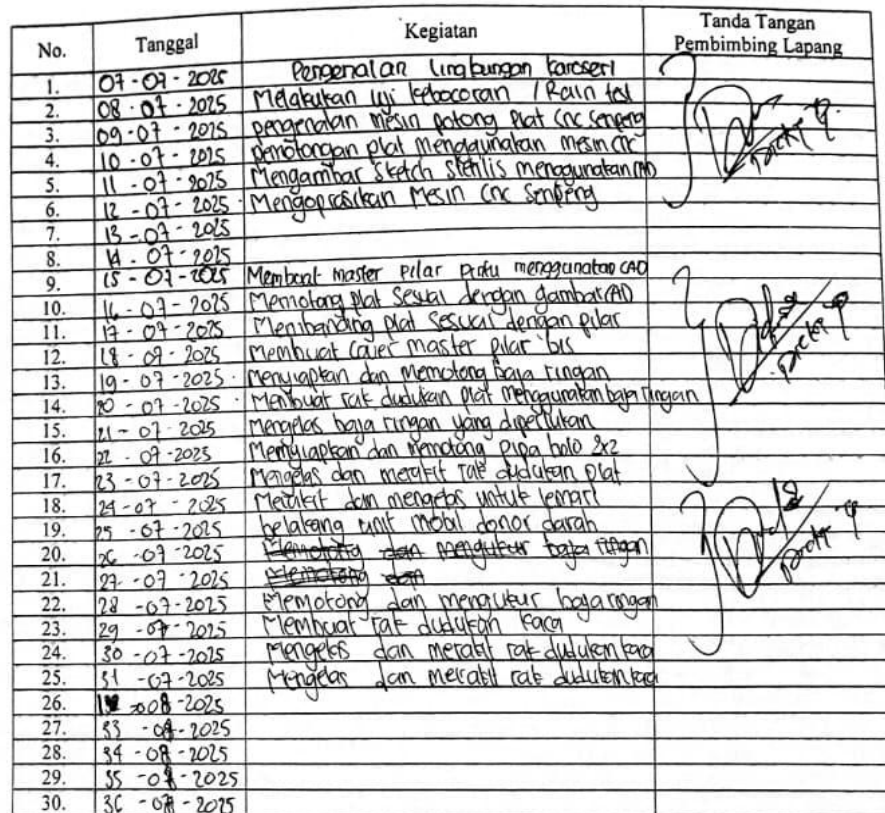 No. Tanggal Kegiatan Tanda Tangan Pembimbing Lapang
1. 07-07-2025 Pengenalan lingkungan karoseri
2. 08-07-2025 Melakukan uji kebocoran / Rain test
3. 09-07-2025 pengenalan mesin potong plat CNC Senpeng
4. 10-07-2025 pemotongan plat menggunakan mesin CNC
5. 11-07-2025 Mengambar Sketch Stenlis menggunakan CAD
6. 12-07-2025 Mengoprasikan Mesin CNC Senpeng
7. 13-07-2025
8. 14-07-2025
9. 15-07-2025 Membuat master pilar pintu menggunakan CAD
10. 16-07-2025 Memotong plat Sesuai dengan gambar CAD
11. 17-07-2025 Menibanding plat Sesuai dengan pilar
12. 18-07-2025 Membuat Cover master pilar bis
13. 19-07-2025 Menyiapkan dan Memotong baja ringan
14. 20-07-2025 Membuat rak dudukan plat menggunakan baja ringan
15. 21-07-2025 Mengelas baja ringan yang diperlukan
16. 22-07-2025 Menyiapkan dan memotong pipa holo 2x2
17. 23-07-2025 Mengelas dan merakit rak dudukan plat
18. 24-07-2025 Merakit dan mengelas untuk lemari
19. 25-07-2025 belakang unit mobil donor darah
20. 26-07-2025 Memotong dan mengukur baja ringan
21. 27-07-2025 Memotong dan
22. 28-07-2025 Memotong dan mengukur baja ringan
23. 29-07-2025 Membuat rak dudukan kaca
24. 30-07-2025 Mengelas dan merakit rak dudukan kaca
25. 31-07-2025 Mengelas dan merakit rak dudukan kaca
26. -08-2025
27. 33 -08-2025
28. 34 -08-2025
29. 35 -08-2025
30. 36 -08-2025